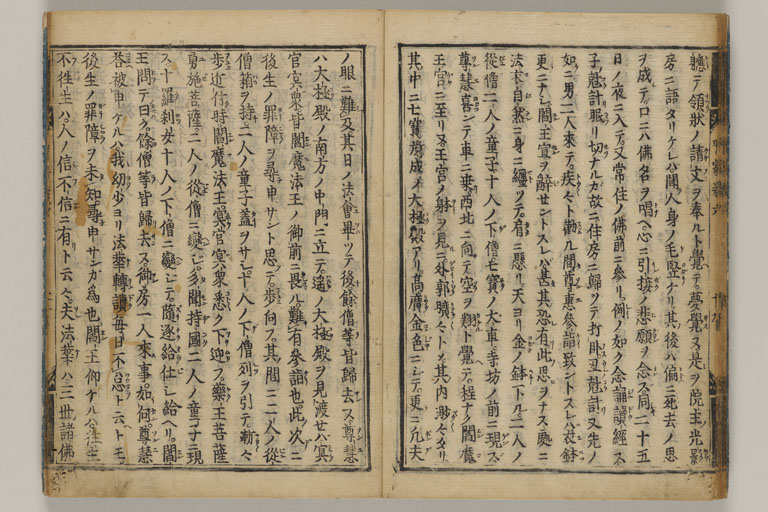 聽テ領狀ノ請文ヲ奉ルト覺テ。夢覺ヌ是ヲ院主光影
房ニ語タリケレバ聞人身ノ毛竪ケリ其後ハ偏ニ死去ノ思
ヲ成テ。口ニハ佛名ヲ唱ヘ心ニ引接ノ悲願ヲ念ス。同二十五
日ノ夜ニ入テ。又常住ノ佛前ニ參リ。例ノ如ク念誦讀經ス
子尅計眠リ切ナルカ故ニ住房ニ歸ツテ打臥丑尅計又先ノ
如ニ男二人來テ疾々ト勸ル間尊惠參詣致ントスレバ衣鉢
更ニナシ閻王宣ヲ辭セントスレバ甚其恐有此思ヲナス處ニ
法衣自然ニ身ニ纏ツテ。肩ニ懸リ。天ヨリ金ノ鉢下ル二人ノ
從僧二人ノ童子十人ノ下僧七寶ノ大車寺坊ノ前ニ現ス
尊惠喜ンテ車ニ乘西北ニ向テ。空ヲ翔ト覺テ。程ナク閻魔
王宮ニ至リヌ王宮ノ躰ヲ見ニ外郭曠々トメ其内渺々タリ。
其中ニ七寶所成ノ大極殿アリ。高廣金色ニシテ更ニ凡夫
ノ眼ニ難及其日ノ法會畢ツテ後餘僧等皆歸去ス尊惠
ハ大極殿ノ南方ノ中門ニ立テ。遙ノ大極殿ヲ見渡セバ冥
官冥衆皆閻魔法王ノ御前ニ畏ル難有參詣也此次ニ
後生ノ罪障ヲ尋申サント思テ。歩向フ。其間ニ二人ノ從
僧箱ヲ持二人ノ童子蓋ヲサシ。十人ノ下僧列ヲ引テ漸々
歩近付時閻魔法王冥官冥衆悉ク下迎フ。藥王菩薩
勇施菩薩二人ノ從僧ニ變シ。多聞持國二人ノ童子ニ現
ス十羅刹女十人ノ下僧ニ變シテ。隨逐給仕シ給ヘリ。閻
王問テ曰ク。餘僧等皆歸去ス御房一人來事如何。尊惠
答被申ケルハ我幼少ヨリ法華轉讀毎日不怠ト云トモ
後生ノ罪障ヲ未知尋申サンカ爲也閻王仰ケルハ往生
不往生ハ人ノ信不信ニ有ト云々。夫法華ハ三世諸佛